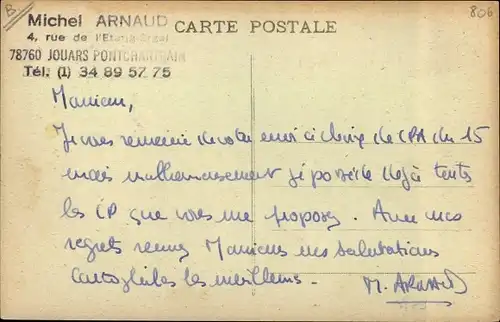 B
806
Michel ARNAUD
4, rue de l'Etang
78760 JOUARS PONTCHARTRAIN
Tél. (1) 34 89 57 75
CARTE POSTALE
Monsieur,
Je vous remercie de votre envoi de CPA du 15
mais malheureusement je possède déjà toutes
les CP que vous me proposez. Avec mes
regrets recevez Monsieur mes salutations
cartophiles les meilleures.
M. ARNAUD